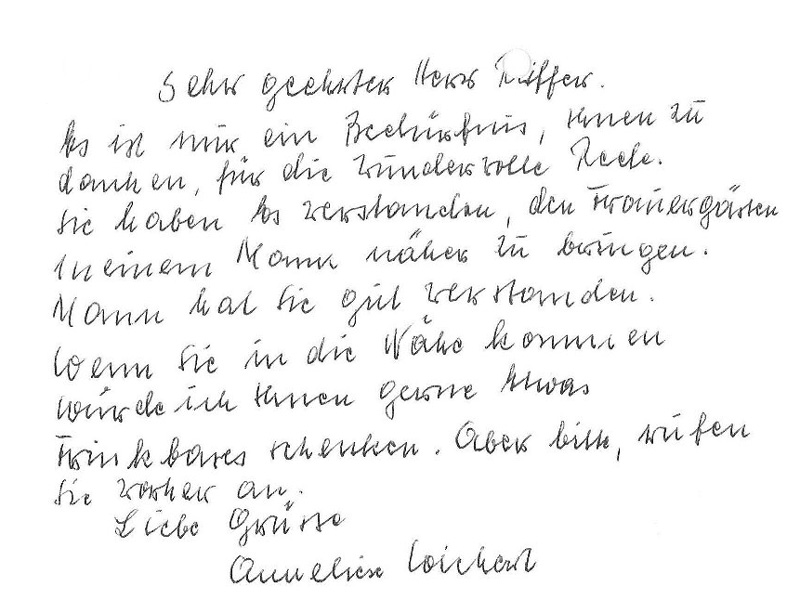 Sehr geehrter Herr Riffer.
Es ist mir ein Bedürfnis, Ihnen zu
danken, für die wundervolle Rede.
Sie haben Es verstanden, den Trauergästen
meinem Mann näher zu bringen.
Mann hat Sie gut verstanden.
Wenn Sie in die Nähe kommen
würde ich Ihnen gerne Etwas
Trinkbares schenken. Aber bitte, rufen
Sie vorher an.
Liebe Grüsse
Anneliese